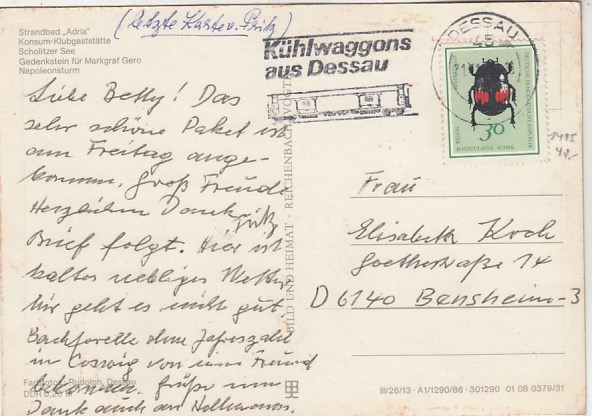 (letzte Karte v. Fritz)
Strandbad „Adria"
Konsum-Klubgaststätte
Scholitzer See
Gedenkstein für Markgraf Gero
Napoleonsturm
Kühlwaggons
aus Dessau
DESSAU
45
30
Liebe Betty! Das
sehr schöne Paket ist
am Freitag ange-
kommen, groß Freude
Herzlichen Dank
Fritz
Brief folgt. Hier ist
kaltes nebliges Wetter
mir geht es nicht gut
Bachforelle ohne Jahreszahl
in Coswig von einem Freund
bekommen. Grüße und
Dank auch an
Frau
Elisabeth Koch
Goethestraße 14
D 6140 Bensheim-3
BILD UND HEIMAT · REICHENBACH (VOGTL)
Farbfoto: Rudolph, Dessau
III/26/13 · A1/1290/86 · 301290 01 08 0379/31